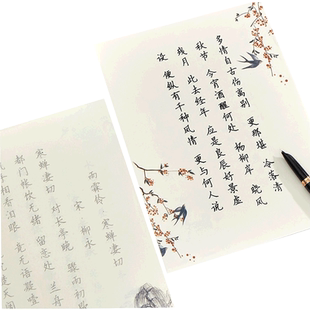 多情自古伤离别 更那堪 冷落清
秋节 今宵酒醒何处 杨柳岸 晓风
残月 此去经年 应是良辰好景虚
设 便纵有千种风情 更与何人说
雨霖铃 寒蝉凄切
宋 柳永
寒蝉凄切 对长亭晚 骤雨初
都门帐饮无绪 留恋处 兰舟
手相看泪眼 竟无语凝噎
楚天阔